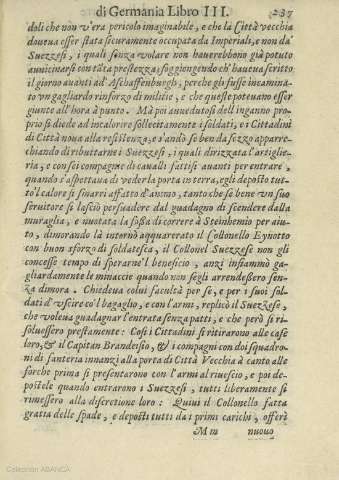 di Germania Libro III. 237
doli che non v'era pericolo imaginabile, e che la Città vecchia
doueua esser stata sicuramente occupata da Imperiali, e non da'
Suezzesi, i quali senza volare non hauerebbono già potuto
auuicinarsi con tãta prestezza; soggiengendo ch'haueua scritto
il giorno auanti ad Aschaffenburgh, perche gli fusse incamina-
to vn gagliardo rinforzo di militie, e che queste poteuano esser
giunte all'hora à punto. Mà poi auuedutosi dell'inganno pro-
prio si diede ad incalorire sollecitamente i soldati, e i Cittadini
di Città noua alla resistenza, e s'andò se ben da sezzo apparrec-
chiando di ributtarne i Suezzesi, i quali dirizzata l'artiglie-
ria, e con sei compagne di caualli fattisi auanti per entrare,
quando s'aspettaua di veder la porta in terra, egli deposto tut-
to'l calore si smarrì affatto d'animo, tanto che se bene vn suo
seruitore si lasciò persuadere dal guadagno di scendere dalla
muraglia, e nuotata la fossa di correre à Steinhemio per aiu-
to, dimorando là intorno acquarerato il Collonello Eynotto
con buon sforzo di soldatesca, il Collonel Suezzese non gli
concesse tempo di sperarne'l beneficio, anzi infiammò ga-
gliardamente le minaccie quando non segli arrendessero sen-
za dimora. Chiedeua colui facultà per se, e per i suoi sol-
dati d'vscire co'l bagaglio, e con l'armi, replicò il Suezzese,
che voleua guadagnar l'entrata senza patti, e che però si ri-
soluessero prestamente: Così i Cittadini si ritirarono alle case
loro, & il Capitan Brandeisio, & i compagni con doi squadro-
ni di fanteria innanzi alla porta di Città Vecchia à canto alle
forche prima si presentarono con l'armi al riuescio, e poi de-
postele quando entrarono i Suezzesi, tutti liberamente si
rimessero alla discretione loro: Quiui il Collonello fatta
gratia delle spade, e deposti tutti da i primi carichi, offerò
M m nuouo
Colección ABANCA